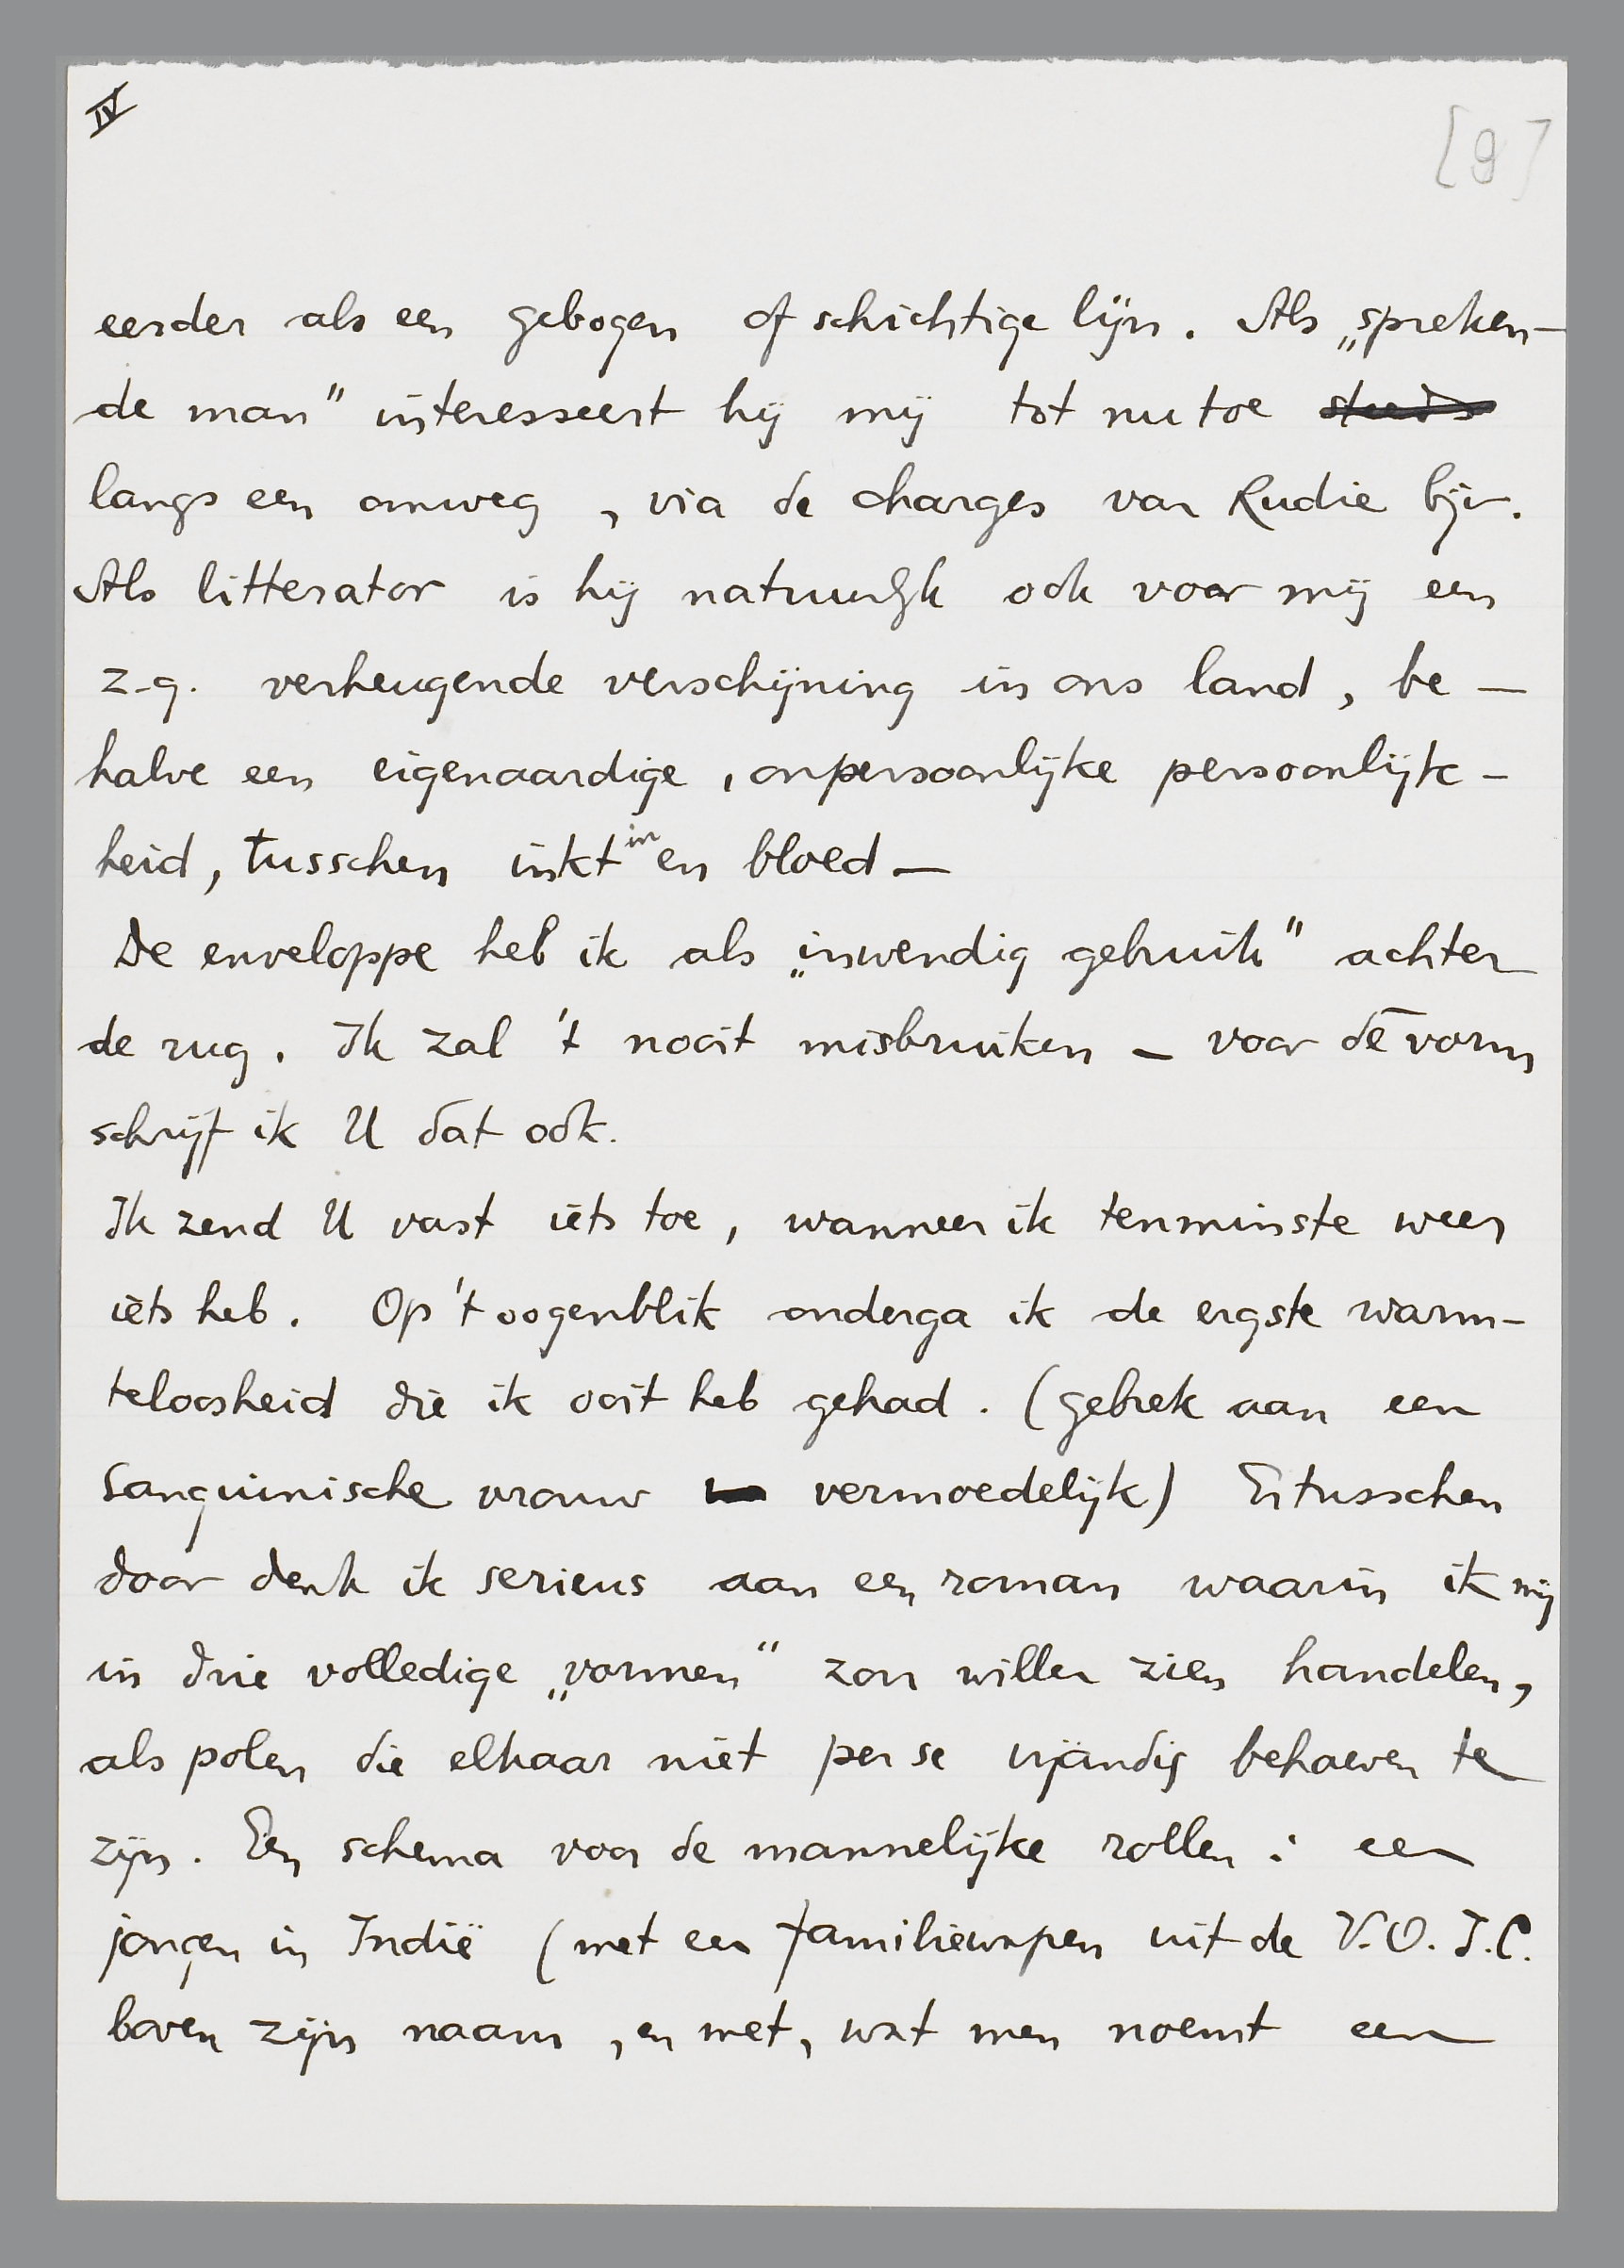 IV
[9]
eerder als een gebogen of schichtige lijn. Als „spreken-
de man" interesseert hij mij tot nu toe ~~steeds~~
langs een omweg, via de charges van Rudie bijv.
Als litterator is hij natuurlijk ook voor mij een
z.g. verheugende verschijning in ons land, be-
halve een eigenaardige, onpersoonlijke persoonlijk-
heid, tusschen inkt in en bloed —
De enveloppe heb ik als „inwendig gebruik" achter
de rug. Ik zal 't nooit misbruiken — voor de vorm
schrijf ik U dat ook.
Ik zend U vast iets toe, wanneer ik tenminste weer
iets heb. Op 't oogenblik onderga ik de ergste warm-
teloosheid die ik ooit heb gehad. (gebrek aan een
sanguinische vrouw vermoedelijk) Ertusschen
door denk ik serieus aan een roman waarin ik mij
in drie volledige „vormen" zou willen zien handelen,
als polen die elkaar niet per se vijandig behoeven te
zijn. Een schema voor de mannelijke rollen: een
jongen in Indië (met een familiewapen uit de V.O.I.C.
boven zijn naam, en met, wat men noemt een